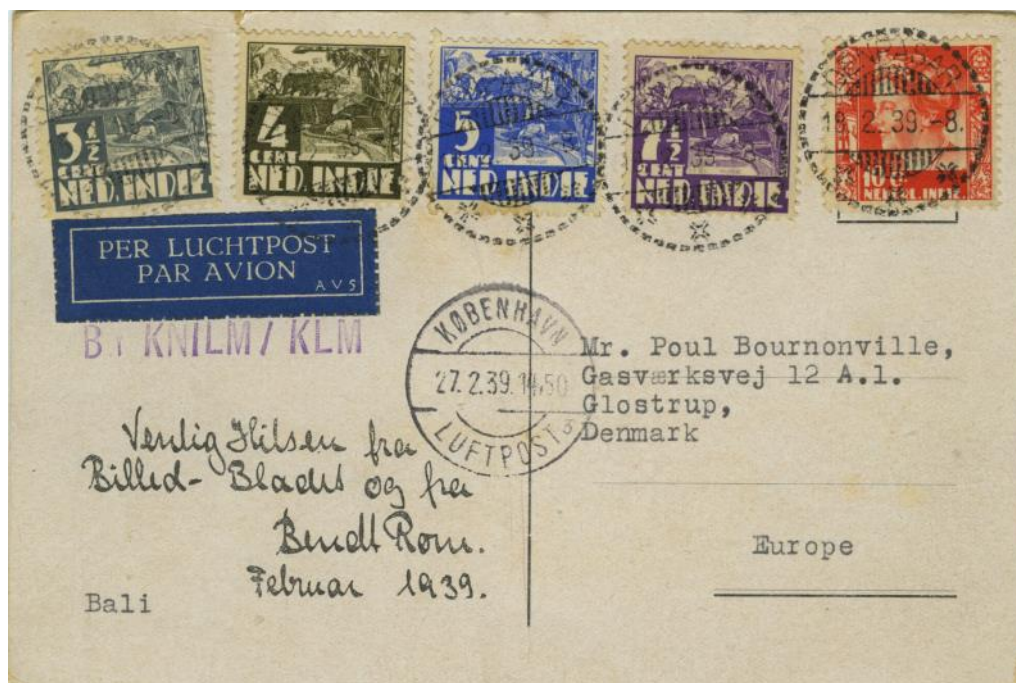 3½ CENT NED. INDIE
4 CENT NED. INDIE
5 CENT NED. INDIE
7½ CENT NED. INDIE
10
18.2.39.-8.
PER LUCHTPOST
PAR AVION
AVS
BY KNILM / KLM
KØBENHAVN
27.2.39.14.50
LUFTPOST 3
Mr. Poul Bournonville,
Gasværksvej 12 A.1.
Glostrup,
Denmark
Europe
Venlig Hilsen fra
Billed-Bladet og fra
Bendt Rom.
Februar 1939.
Bali